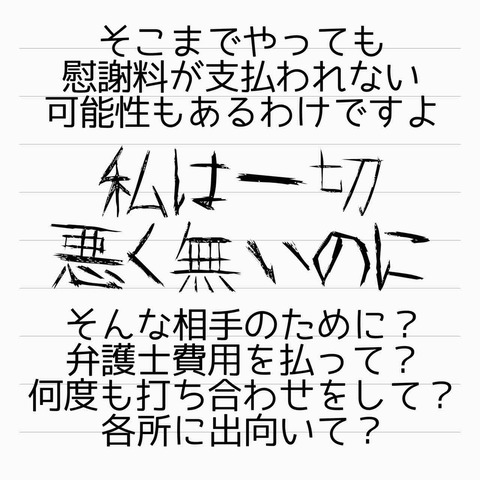 そこまでやっても
慰謝料が支払われない
可能性もあるわけですよ
私は一切
悪く無いのに
そんな相手のために？
弁護士費用を払って？
何度も打ち合わせをして？
各所に出向いて？